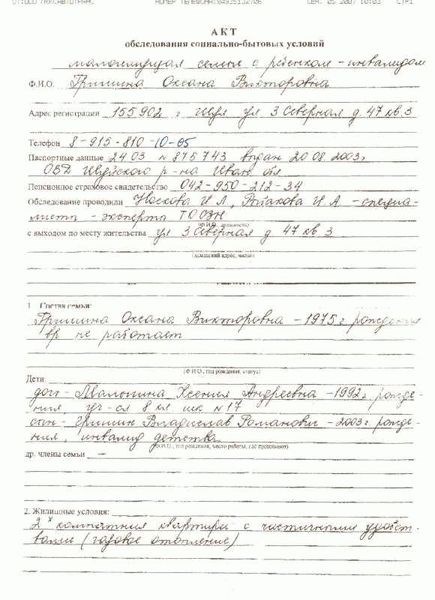 А К Т
обследования социально-бытовых условий
малоимущая семья с ребенком-инвалидом
Ф.И.О. Гришина Оксана Викторовна
Адрес регистрации 155902 г Шуя ул 3 Северная д. 47 кв. 3
Телефон 8-915-810-10-65
Паспортные данные 24 03 № 875743 выдан 20.08.2003г
ОВД Шуйского р-на Иван. обл
Пенсионное страховое свидетельство 042-950-212-34
Обследование проводили Носкова И Л, И А - специа-
листы - эксперты ТОСЗН
с выходом по месту жительства ул 3 Северная д 47 кв 3
(домашний адрес, жилье)
1. Состав семьи:
Гришина Оксана Викторовна - 1975 г. рождения
вр. не работает
(Ф.И.О., год рождения, статус)
Дети:
дочь - Ксения Андреевна - 1992г. рожде-
ния, уч-ся 8 кл шк № 17
сын - Гришин Владислав Романович - 2003г рожде-
ния, инвалид детства
др. члены семьи -
2. Жилищные условия:
2х комнатная квартира с частичными удобст-
вами (газовое отопление)